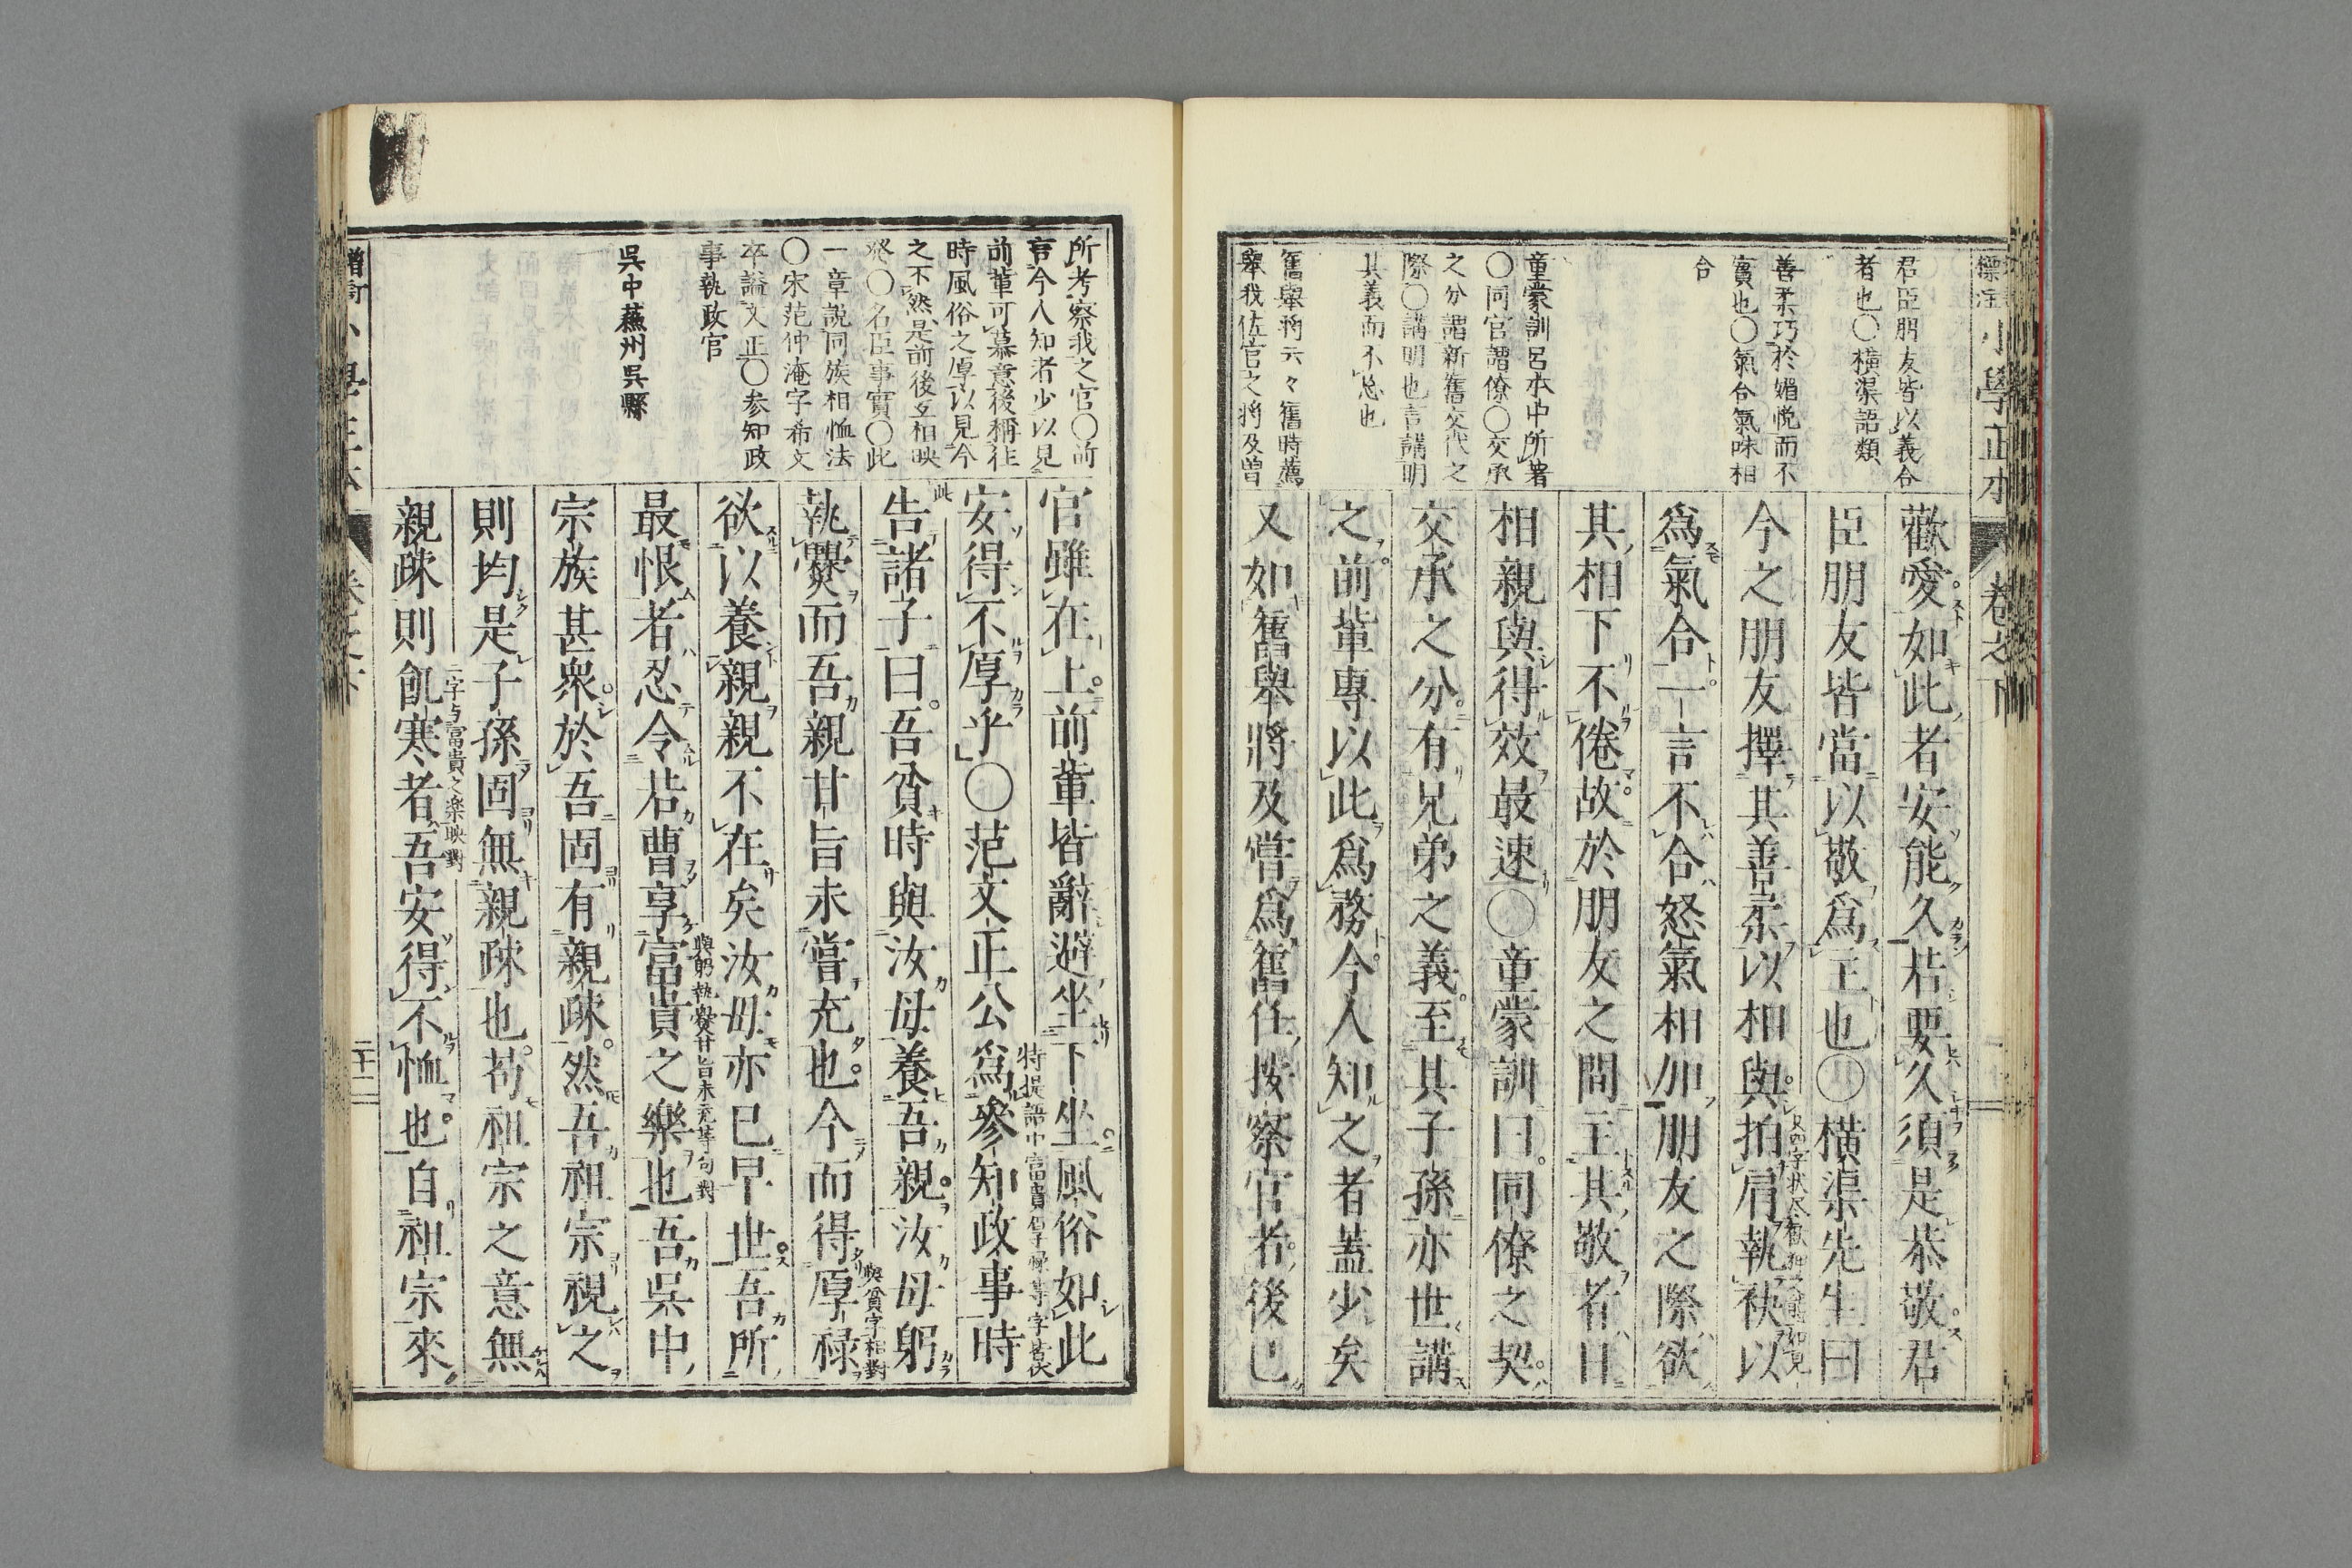 標注
小學正本
卷之下
君臣朋友皆以義合
者也〇橫渠語類
善柔巧於媚悦而不
實也〇氣合氣味相
合
童蒙訓呂本中所著
〇同官謂僚〇交承
之分謂新舊交代之
際〇講明也言講明
其義而不忘也
舊舉將云々舊時薦
舉我佐官之將及曽
歡愛如此者安能久若要久須是恭敬君
臣朋友皆當以敬爲主也〇橫渠先生曰
今之朋友擇其善柔以相與拍肩執袂以
爲氣合一言不合怒氣相加朋友之際欲
其相下不倦故於朋友之間主其敬者日
相親與得效最速〇童蒙訓曰同僚之契
交承之分有兄弟之義至其子孫亦世講
之前輩專以此爲務今人知之者蓋少矣
又如舊舉將及嘗爲舊任按察官者後已
所考察我之官〇前
言今人知者少以見
前輩可慕意後稱往
時風俗之厚以見今
之不然是前後互相映
〇名臣事實〇此
一章説同族相恤法
〇宋范仲淹字希文
卒謚文正〇参知政
事執政官
吳中蘇州吳縣
官雖在上前輩皆辭避坐下坐風俗如此
安得不厚乎〇范文正公爲參知政事時
特提語中富貴厚祿等字皆伏
此
告諸子曰吾貧時與汝母養吾親汝母躬
執爨而吾親甘旨未嘗充也今而得厚禄
與貧字相對
欲以養親親不在矣汝母亦已早世吾所
最恨者忍令若曹享富貴之樂也吾吳中
與躬執爨甘旨未充等句對
宗族甚衆於吾固有親疎然吾祖宗視之
則均是子孫固無親疎也苟祖宗之意無
親疎則飢寒者吾安得不恤也自祖宗來
二字与富貴之楽映對
二十二